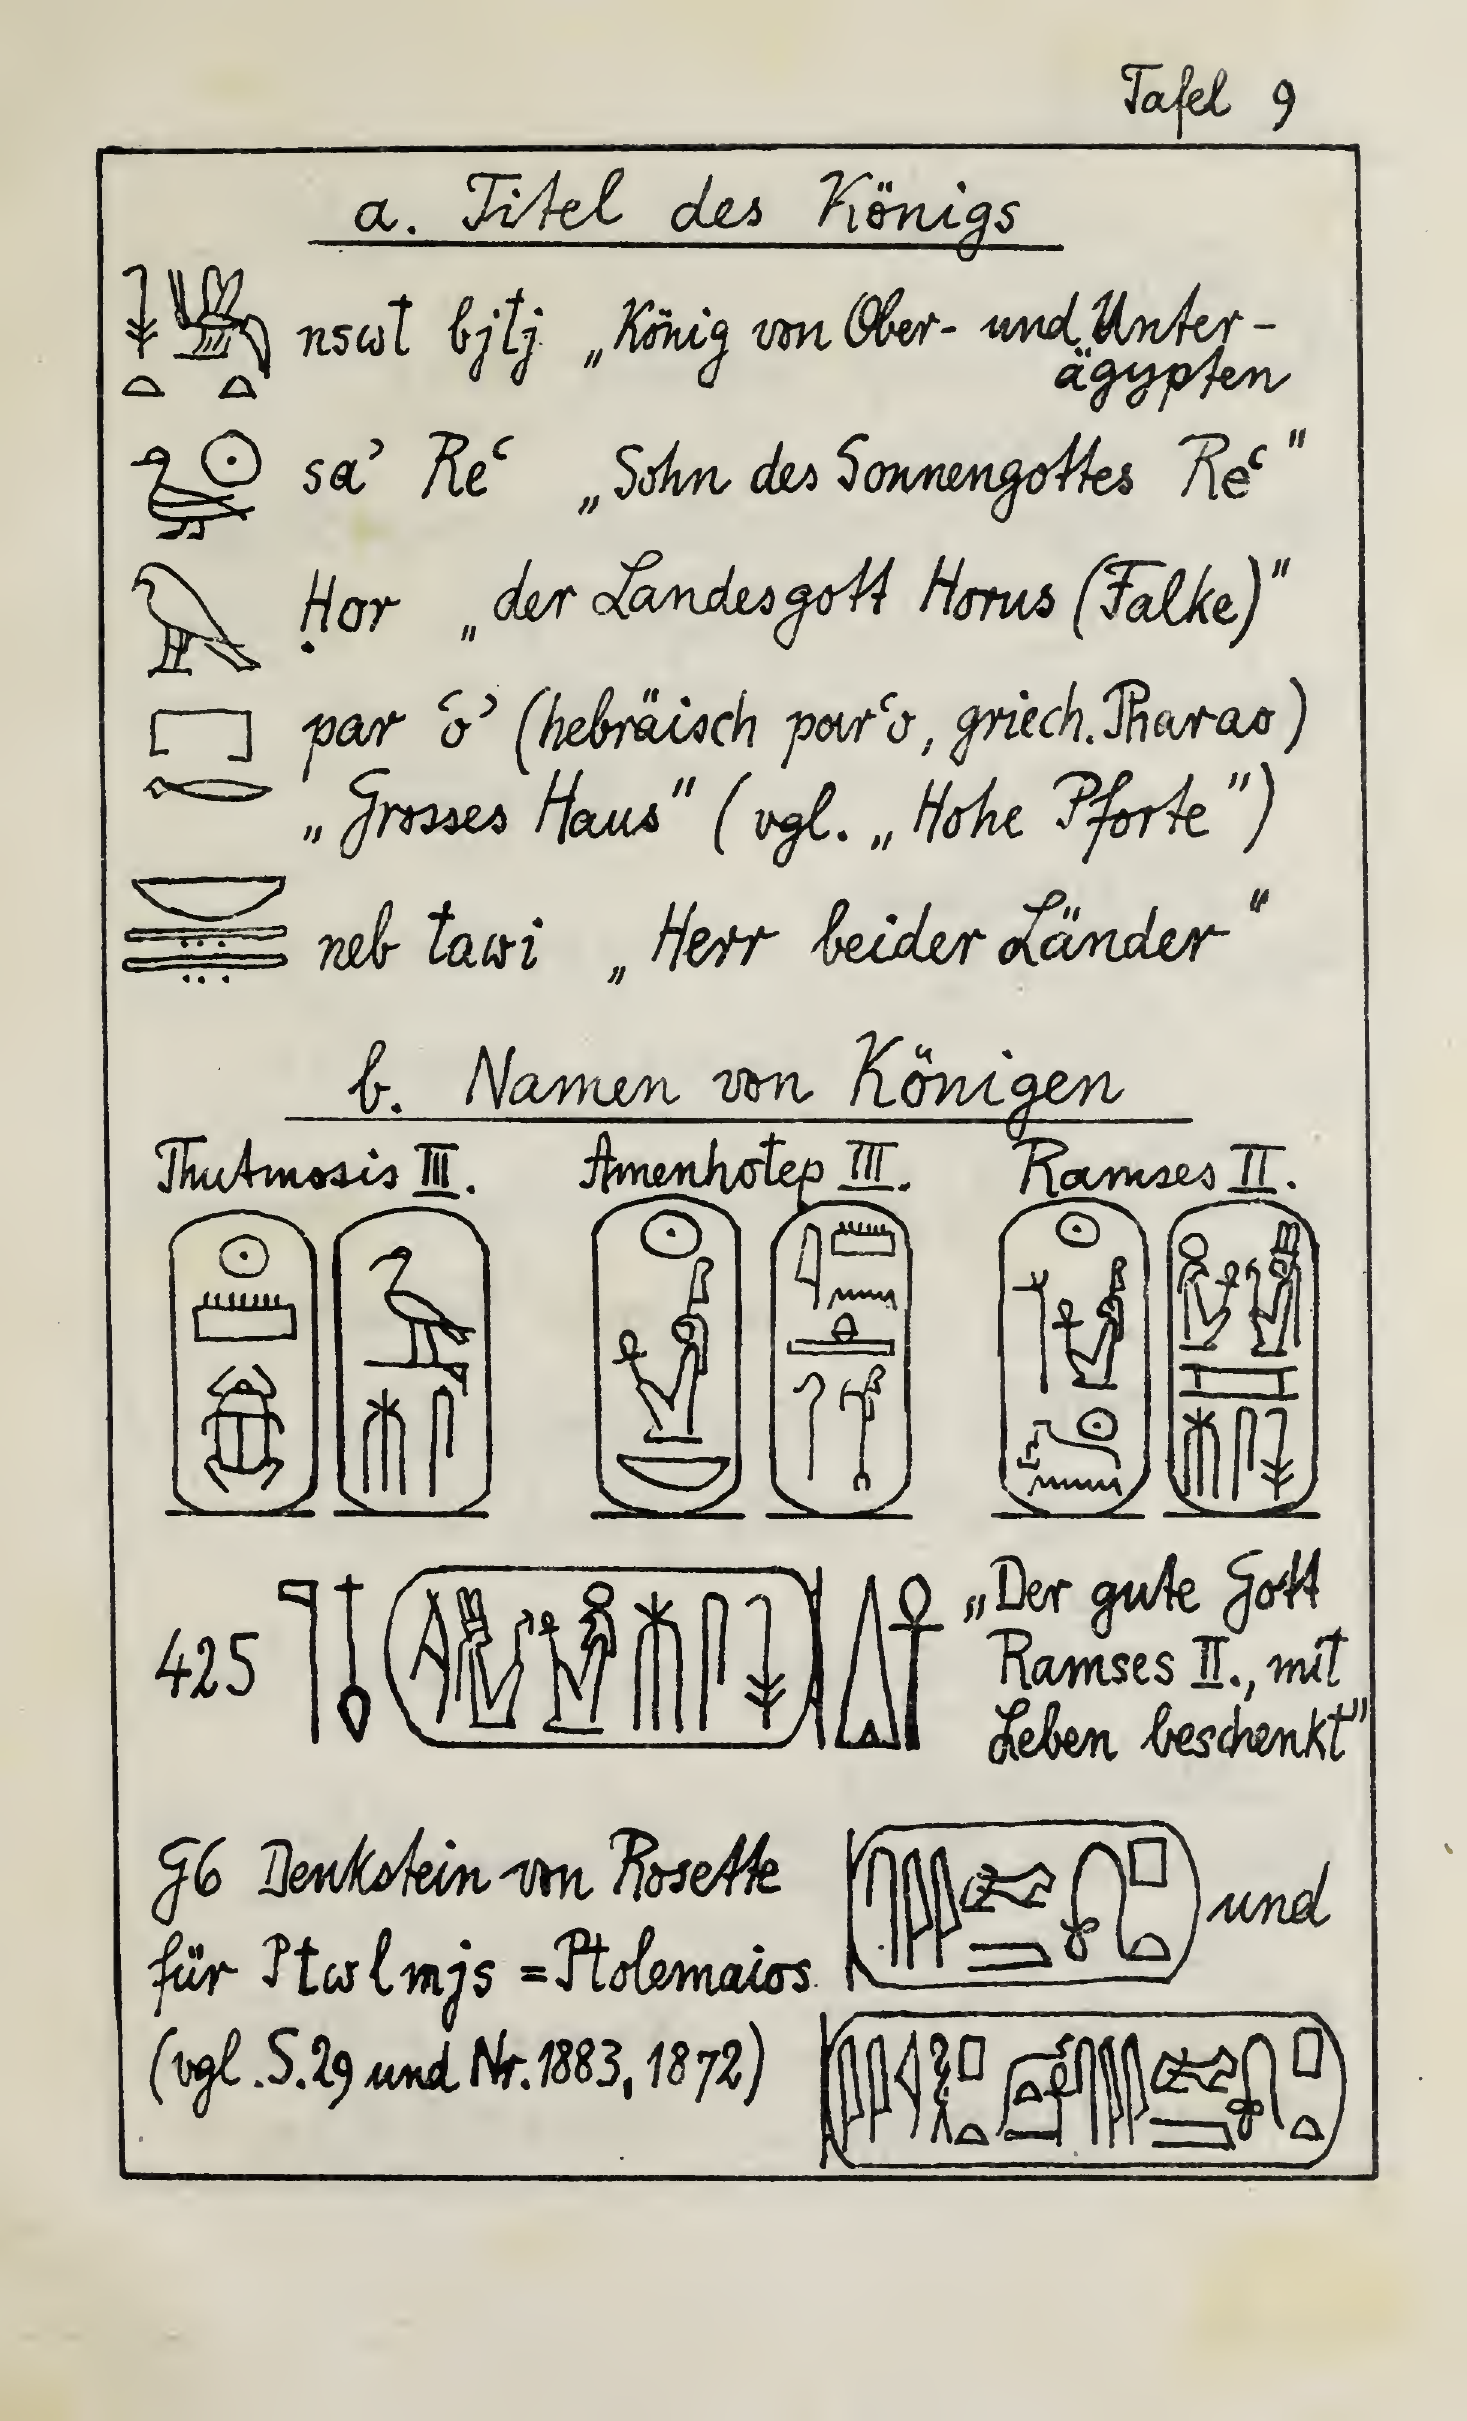 Tafel 9
a. Titel des Königs
nswt bjtj „König von Ober- und Unter-
ägypten
saʾ Reʿ „Sohn des Sonnengottes Reʿ"
Ḥor „der Landesgott Horus (Falke)"
par ʿoʾ (hebräisch parʿo, griech. Pharao)
„Grosses Haus" (vgl. „Hohe Pforte")
neb tawi „Herr beider Länder"
b. Namen von Königen
Thutmosis III. Amenhotep III. Ramses II.
425 „Der gute Gott
Ramses II., mit
Leben beschenkt"
G6 Denkstein von Rosette
und
für Ptwlmjs = Ptolemaios.
(vgl. S. 29 und Nr. 1883, 1872)